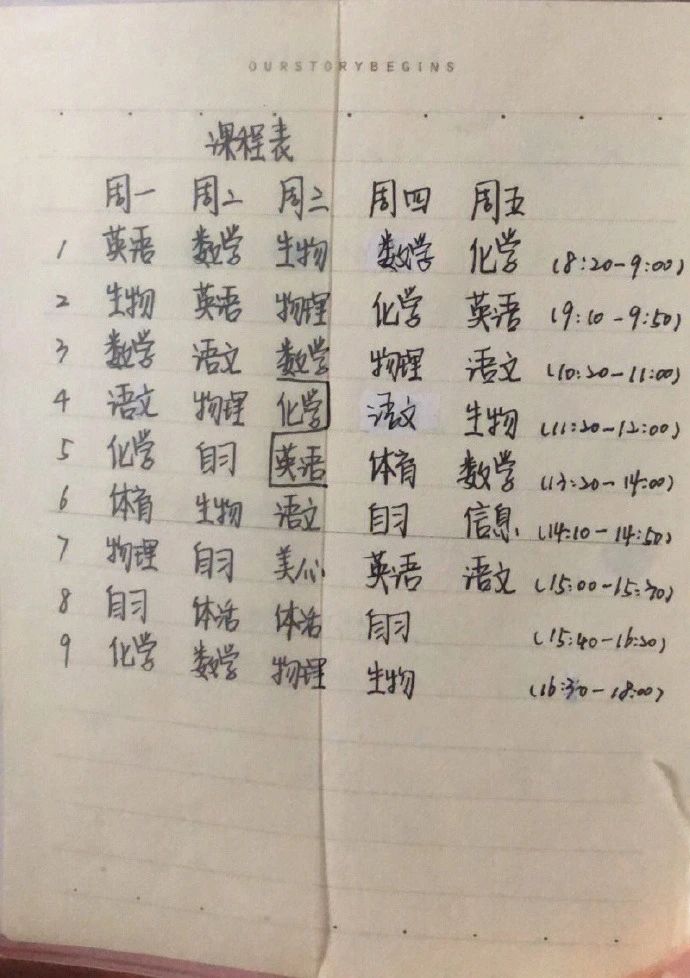 OURSTORYBEGINS
课程表
周一 周二 周三 周四 周五
1 英语 数学 生物 数学 化学 (8:20-9:00)
2 生物 英语 物理 化学 英语 (9:10-9:50)
3 数学 语文 数学 物理 语文 (10:20-11:00)
4 语文 物理 化学 语文 生物 (11:20-12:00)
5 化学 自习 英语 体育 数学 (13:20-14:00)
6 体育 生物 语文 自习 信息 (14:10-14:50)
7 物理 自习 美心 英语 语文 (15:00-15:30)
8 自习 体活 体活 自习 (15:40-16:20)
9 化学 数学 物理 生物 (16:30-18:00)